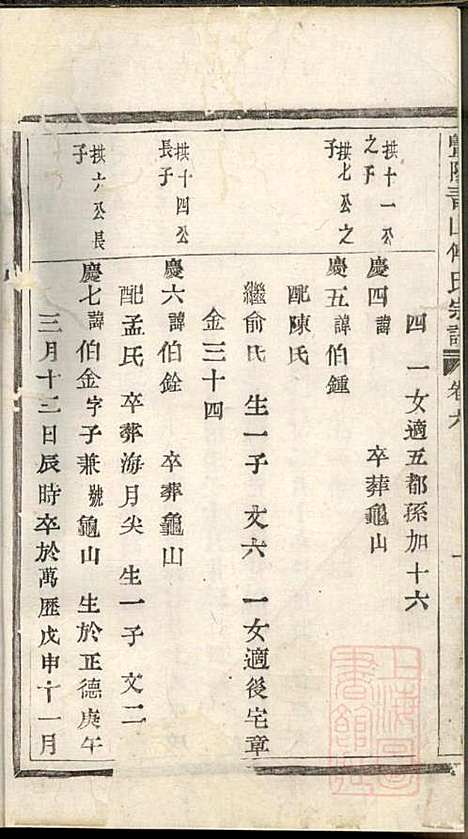 暨陽青山傅氏宗譜 卷六
四 一女適五都孫加十六
拱十一公之子
慶四諱 卒葬龜山
拱七公之子
慶五諱伯鍾
配陳氏
繼俞氏 生一子 文六 一女適後宅章
金三十四
拱十四公長子
慶六諱伯銓 卒葬龜山
配孟氏 卒葬海月尖 生一子 文二
拱六公長子
慶七諱伯金字子兼號龜山 生於正德庚午
三月十三日辰時卒於萬歷戊申十一月
上海圖書館藏